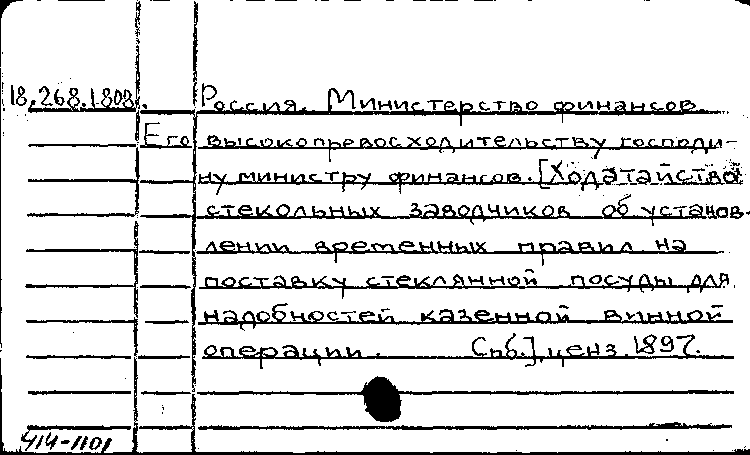 18.268.1808. Россия. Министерство финансов.
Его высокопревосходительству господи-
ну министру финансов. [Ходатайство
стекольных заводчиков об установ-
лении временных правил на
поставку стеклянной посуды для
надобностей казенной винной
операции. Спб.], ценз. 1897.
414-1101